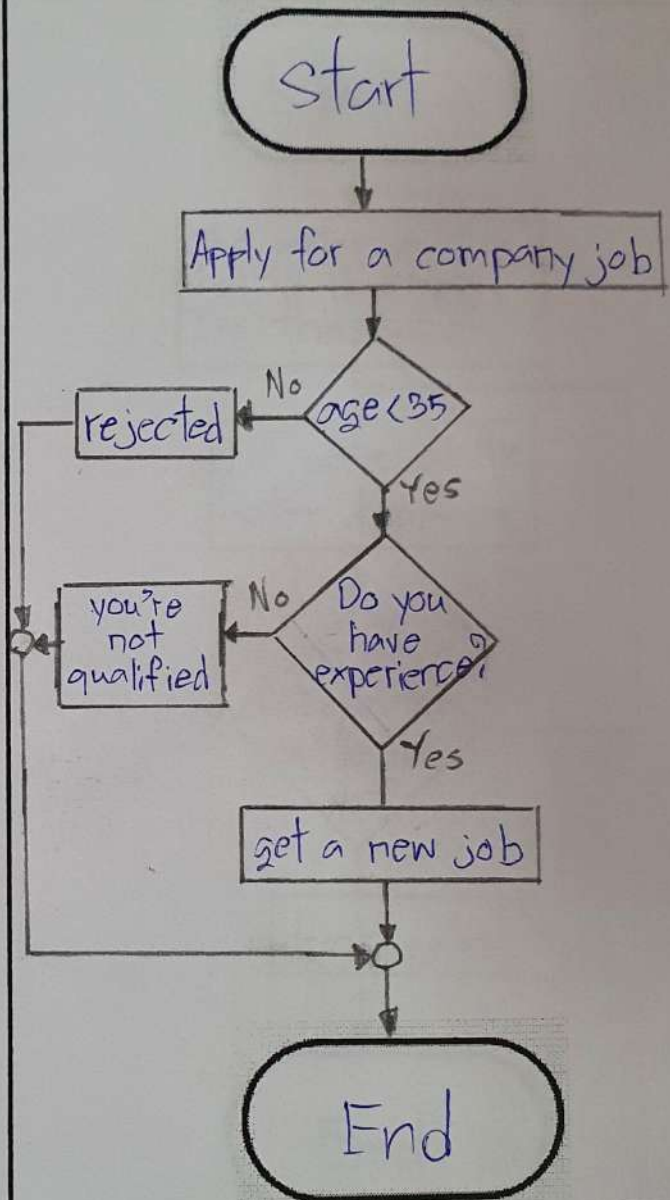 Start
Apply for a company job
No
age<35
rejected
Yes
No
Do you
have
experience?
you're
not
qualified
Yes
get a new job
End